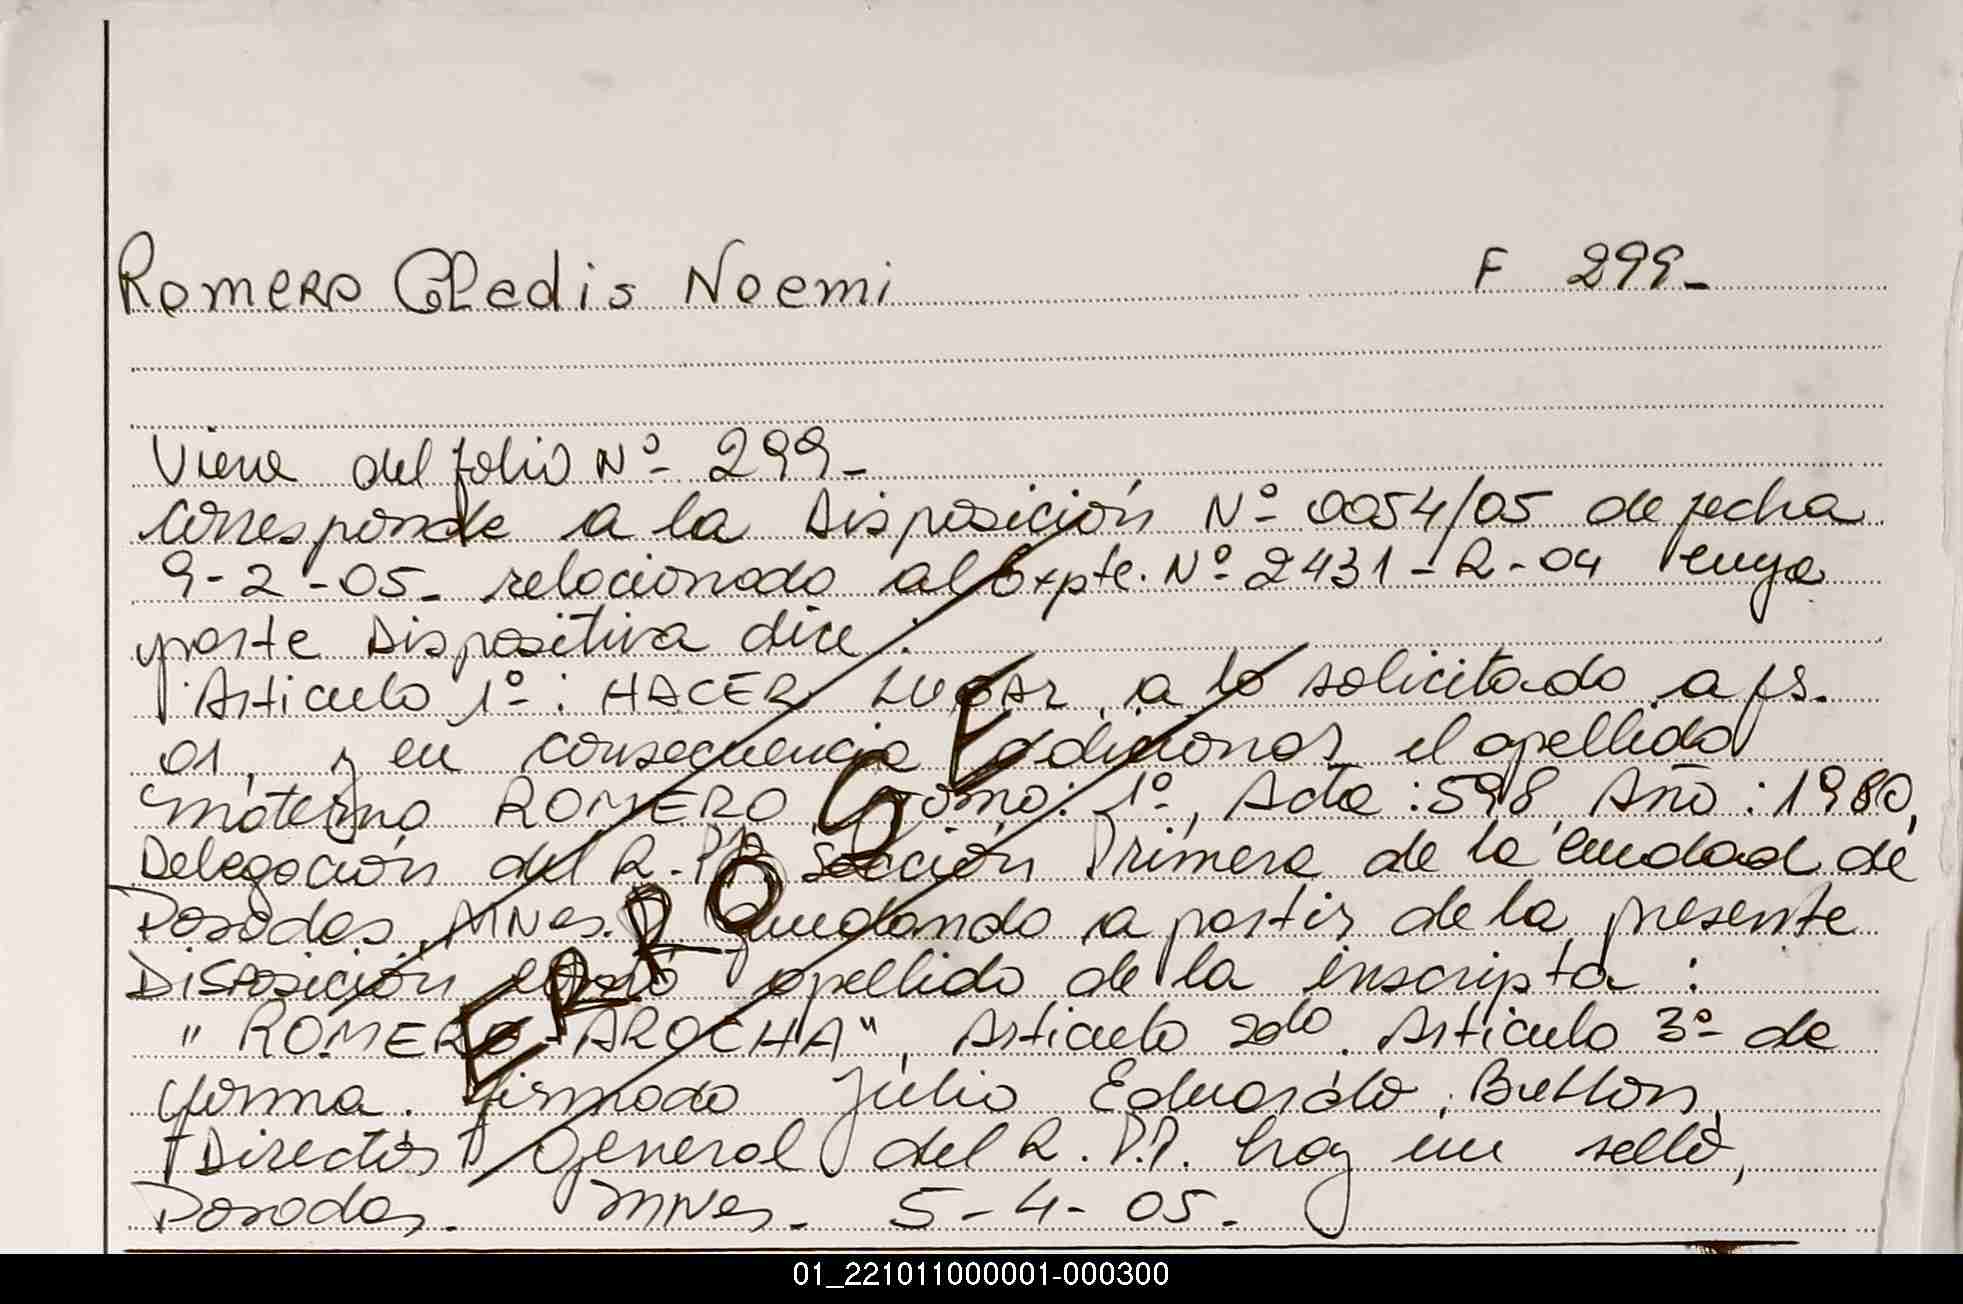 Romero Gledis Noemi F 299-
Viene del folio Nº- 299-
Corresponde a la Disposición Nº- 0054/05 de fecha
9-2-05- relacionado al Expte. Nº- 2431-R-04 cuya
parte Dispositiva dice:
Articulo 1º-: HACER LUGAR a lo solicitado a fs.
01, y en consecuencia adicionar el apellido
materno ROMERO Tomo: 1º, Acta: 598, Año: 1980,
Delegación del R.PP. Sección Primera de la ciudad de
Posadas, MNes. quedando a partir de la presente
Disposición como apellido de la inscripta:
"ROMERO-AROCHA", Articulo 2do. Articulo 3º- de
forma. firmado Julio Eduardo,
Director General del R.P.P. hay un sello,
Posadas. MNes. 5-4-05.
ERROSE
01_221011000001-000300